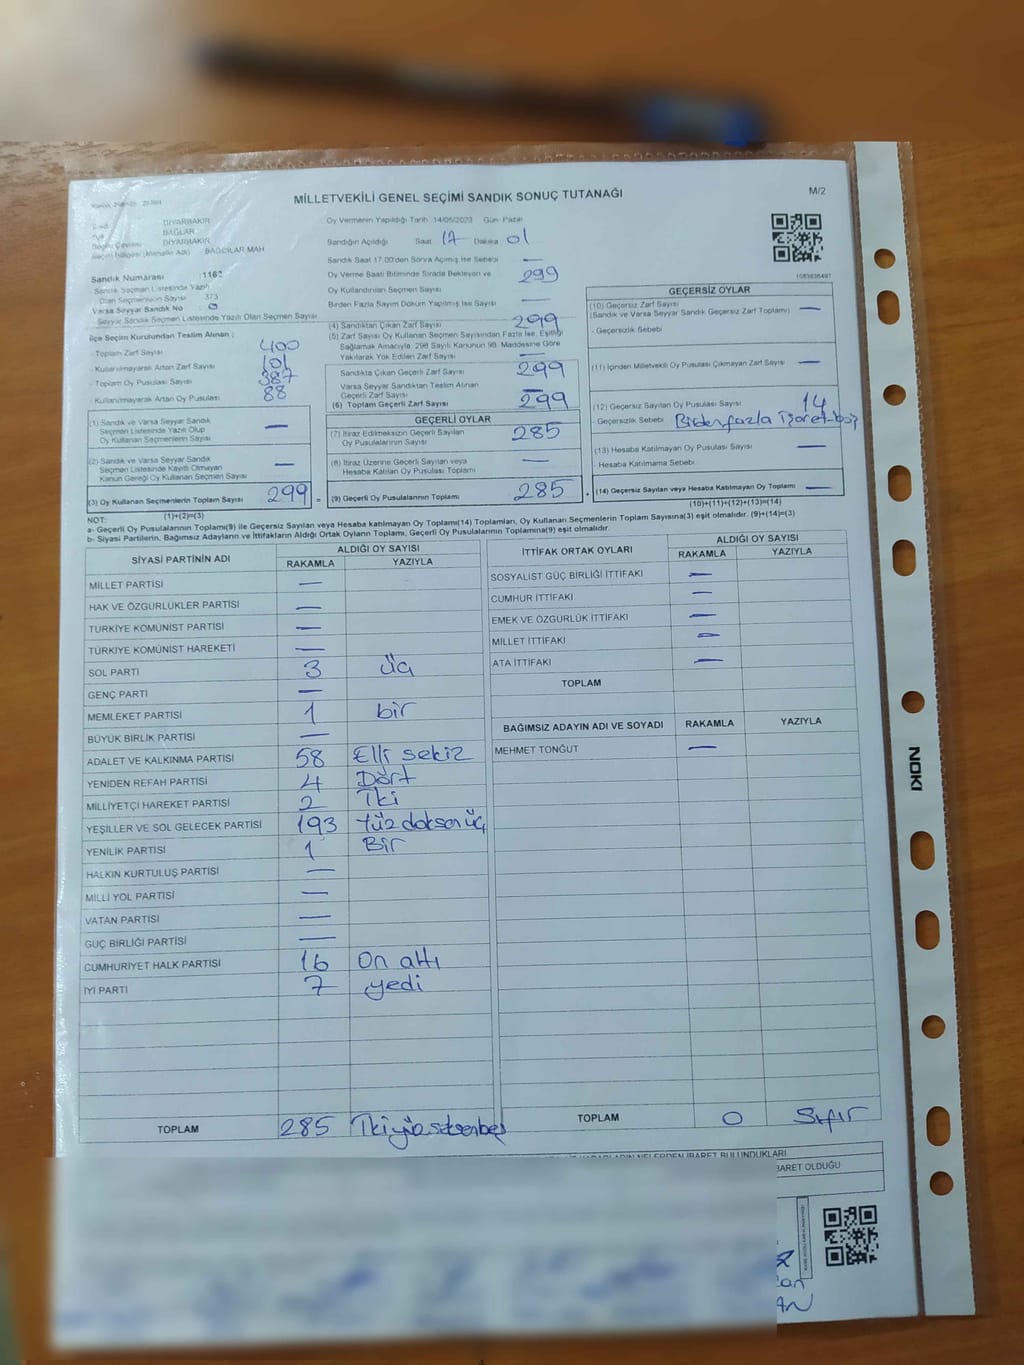 MİLLETVEKİLİ GENEL SEÇİMİ SANDIK SONUÇ TUTANAĞI
M/2
DİYARBAKIR
BAĞLAR
DİYARBAKIR
Seçim Bölgesi (Mahalle Adı) : BAĞCILAR MAH
Oy Vermenin Yapıldığı Tarih :14/05/2023 Gün: Pazar
Sandığın Açıldığı Saat 17 Dakika 01
Sandık Saat 17.00'den Sonra Açılmış İse Sebebi —
Oy Verme Saati Bitiminde Sırada Bekleyen ve
Oy Kullandırılan Seçmen Sayısı 299
Birden Fazla Sayım Döküm Yapılmış İse Sayısı —
Sandık Numarası :1162
Sandık Seçmen Listesinde Yazılı
Olan Seçmenlerin Sayısı 373
Varsa Seyyar Sandık No 0
Seyyar Sandık Seçmen Listesinde Yazılı Olan Seçmen Sayısı
İlçe Seçim Kurulundan Teslim Alınan ;
- Toplam Zarf Sayısı 400
- Kullanılmayarak Artan Zarf Sayısı 101
- Toplam Oy Pusulası Sayısı 387
- Kullanılmayarak Artan Oy Pusulası 88
(1) Sandık ve Varsa Seyyar Sandık
Seçmen Listesinde Yazılı Olup
Oy Kullanan Seçmenlerin Sayısı —
(2) Sandık ve Varsa Seyyar Sandık
Seçmen Listesinde Kayıtlı Olmayan
Kanun Gereği Oy Kullanan Seçmen Sayısı —
(3) Oy Kullanan Seçmenlerin Toplam Sayısı 299 =
(1)+(2)=(3)
(4) Sandıktan Çıkan Zarf Sayısı 299
(5) Zarf Sayısı Oy Kullanan Seçmen Sayısından Fazla İse, Eşitliği
Sağlamak Amacıyla, 298 Sayılı Kanunun 98. Maddesine Göre
Yakılarak Yok Edilen Zarf Sayısı —
Sandıkta Çıkan Geçerli Zarf Sayısı 299
Varsa Seyyar Sandıktan Teslim Alınan
Geçerli Zarf Sayısı —
(6) Toplam Geçerli Zarf Sayısı 299
GEÇERLİ OYLAR
(7) İtiraz Edilmeksizin Geçerli Sayılan
Oy Pusulalarının Sayısı 285
(8) İtiraz Üzerine Geçerli Sayılan veya
Hesaba Katılan Oy Pusulası Toplamı —
(9) Geçerli Oy Pusulalarının Toplamı 285 +
1083636497
GEÇERSİZ OYLAR
(10) Geçersiz Zarf Sayısı
(Sandık ve Varsa Seyyar Sandık Geçersiz Zarf Toplamı) —
- Geçersizlik Sebebi
(11) İçinden Milletvekili Oy Pusulası Çıkmayan Zarf Sayısı —
(12) Geçersiz Sayılan Oy Pusulası Sayısı 14
- Geçersizlik Sebebi Birden fazla işaret-boş
(13) Hesaba Katılmayan Oy Pusulası Sayısı —
- Hesaba Katılmama Sebebi
(14) Geçersiz Sayılan veya Hesaba Katılmayan Oy Toplamı —
(10)+(11)+(12)+(13)=(14)
NOT:
a- Geçerli Oy Pusulalarının Toplamı(9) ile Geçersiz Sayılan veya Hesaba katılmayan Oy Toplamı(14) Toplamları, Oy Kullanan Seçmenlerin Toplam Sayısına(3) eşit olmalıdır. (9)+(14)=(3)
b- Siyasi Partilerin, Bağımsız Adayların ve İttifakların Aldığı Ortak Oyların Toplamı, Geçerli Oy Pusulalarının Toplamına(9) eşit olmalıdır.
SİYASİ PARTİNİN ADI ALDIĞI OY SAYISI
RAKAMLA YAZIYLA
MİLLET PARTİSİ —
HAK VE ÖZGÜRLÜKLER PARTİSİ —
TÜRKİYE KOMÜNİST PARTİSİ —
TÜRKİYE KOMÜNİST HAREKETİ —
SOL PARTİ 3 üç
GENÇ PARTİ —
MEMLEKET PARTİSİ 1 bir
BÜYÜK BİRLİK PARTİSİ —
ADALET VE KALKINMA PARTİSİ 58 Elli sekiz
YENİDEN REFAH PARTİSİ 4 Dört
MİLLİYETÇİ HAREKET PARTİSİ 2 İki
YEŞİLLER VE SOL GELECEK PARTİSİ 193 Yüz doksan üç
YENİLİK PARTİSİ 1 Bir
HALKIN KURTULUŞ PARTİSİ —
MİLLİ YOL PARTİSİ —
VATAN PARTİSİ —
GÜÇ BİRLİĞİ PARTİSİ —
CUMHURİYET HALK PARTİSİ 16 On altı
İYİ PARTİ 7 yedi
TOPLAM 285 İkiyüzseksenbeş
İTTİFAK ORTAK OYLARI ALDIĞI OY SAYISI
RAKAMLA YAZIYLA
SOSYALİST GÜÇ BİRLİĞİ İTTİFAKI —
CUMHUR İTTİFAKI —
EMEK VE ÖZGÜRLÜK İTTİFAKI —
MİLLET İTTİFAKI —
ATA İTTİFAKI —
TOPLAM
BAĞIMSIZ ADAYIN ADI VE SOYADI RAKAMLA YAZIYLA
MEHMET TONĞUT —
TOPLAM 0 Sıfır
NELERDEN İBARET BULUNDUKLARI
BARET OLDUĞU
NOKI